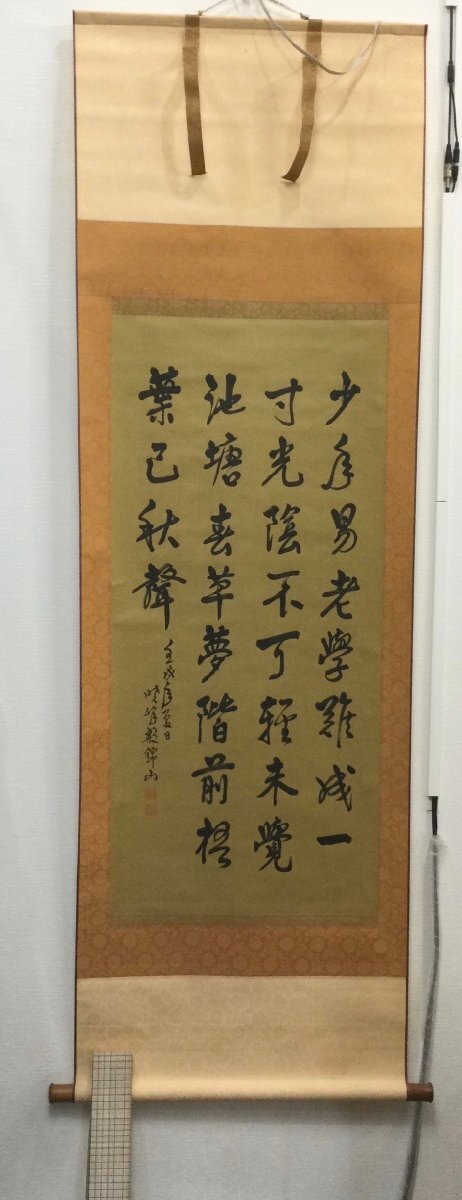 少年易老學難成一
寸光陰不可輕未覺
池塘春草夢階前梧
葉已秋聲
壬戌年夏日
錦山